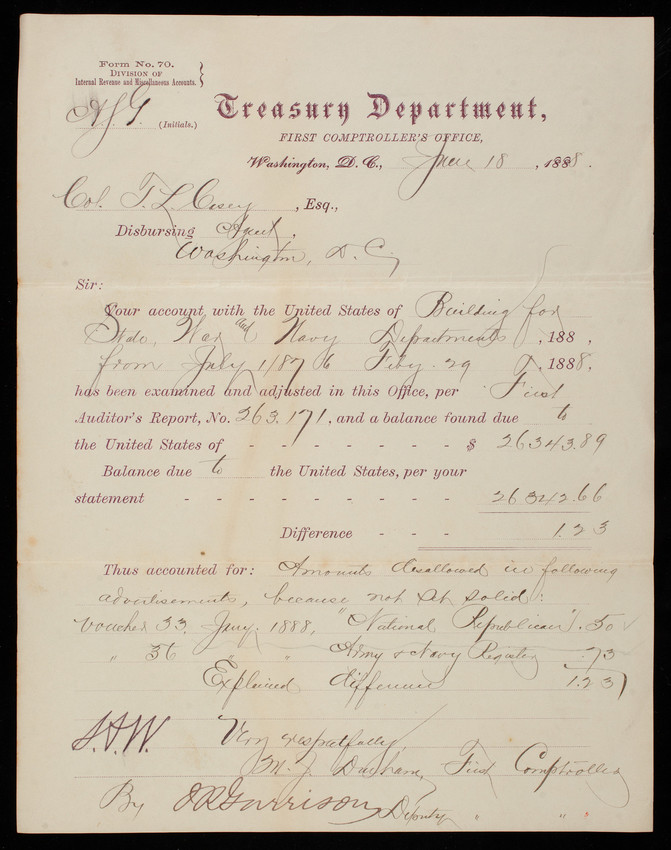 Form No. 70.
DIVISION OF
Internal Revenue and Miscellaneous Accounts.
A.J.G. (Initials.)
Treasury Department,
FIRST COMPTROLLER'S OFFICE,
Washington, D. C., June 18, 1888.
Col. T. L. Casey, Esq.,
Disbursing Agent,
Washington, D. C.
Sir:
Your account with the United States of Building for
State, War and Navy Departments, 188 ,
from July 1/87 to Feby. 29, 1888,
has been examined and adjusted in this Office, per First
Auditor's Report, No. 263.171, and a balance found due to
the United States of - - - - - - - - $ 26343.89
Balance due to the United States, per your
statement - - - - - - - - - 26342.66
Difference - - - 1.23
Thus accounted for: Amounts disallowed in following
advertisements, because not set solid:
Voucher 33, Jany. 1888, "National Republican" .50
" 36 " " Army & Navy Register .73
Explained difference 1.23
S.A.W. Very respectfully,
M. J. Durham, First Comptroller
By J R Garrison Deputy " "